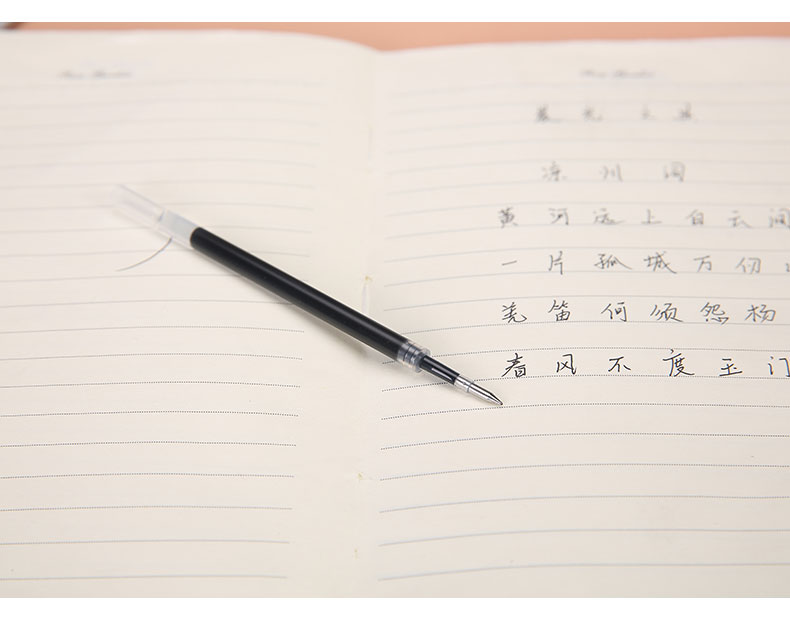 凉州词
黄河远上白云间
一片孤城万仞
羌笛何须怨杨
春风不度玉门